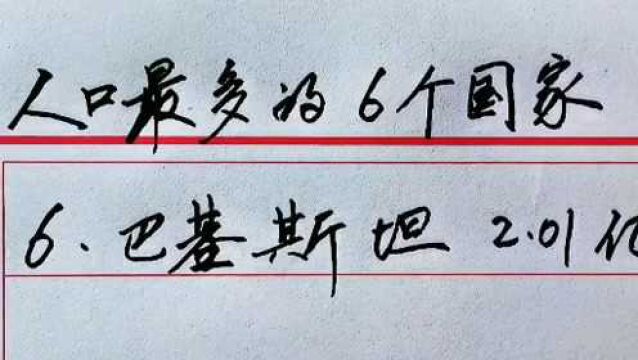 人口最多的6个国家
6.巴基斯坦 2.01亿